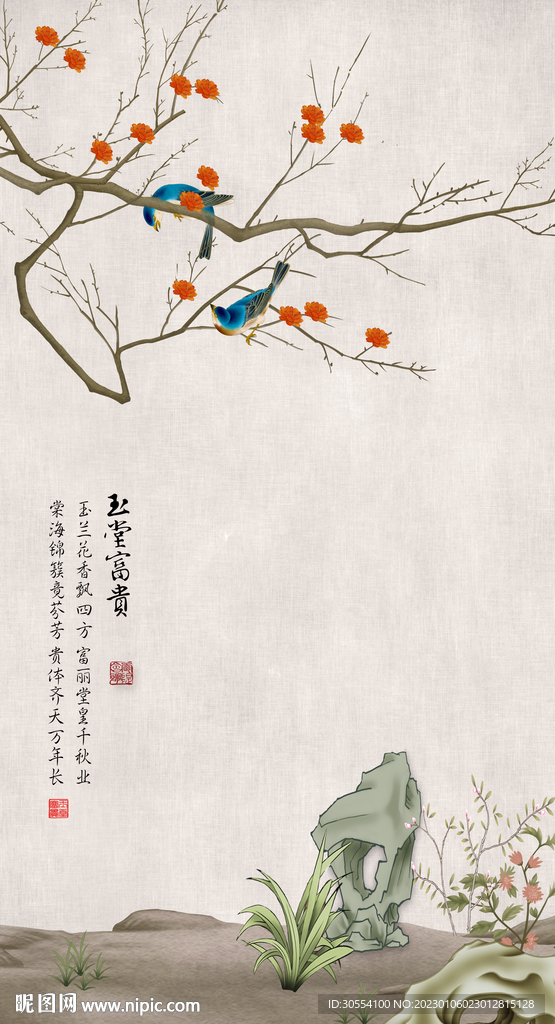 玉堂富貴
玉兰花香飘四方 富丽堂皇千秋业
棠海锦簇竟芬芳 贵体齐天万年长
昵图网 www.nipic.com
ID:30554100 NO:20230106023012815128